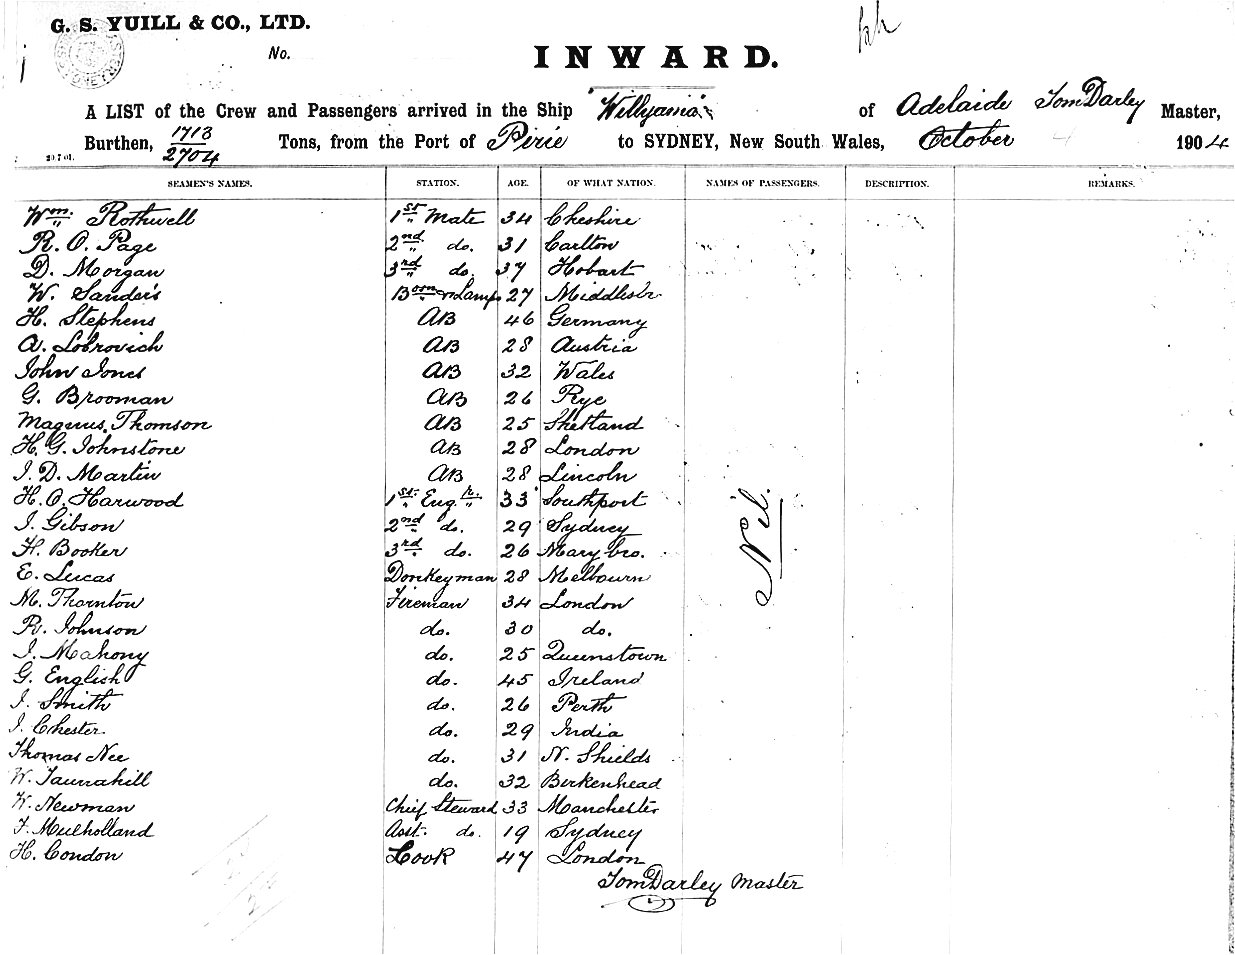 G. S. YUILL & CO., LTD.
No.
INWARD.
A LIST of the Crew and Passengers arrived in the Ship "Willyama" of Adelaide Tom Darley Master,
Burthen, 1713/2704 Tons, from the Port of Pirie to SYDNEY, New South Wales, October 4 1904
20.7.01.
SEAMEN'S NAMES. STATION. AGE. OF WHAT NATION. NAMES OF PASSENGERS. DESCRIPTION. REMARKS.
Wm. Rothwell 1st Mate 34 Cheshire
R. O. Page 2nd do. 31 Carlton
D. Morgan 3rd do. 37 Hobart
W. Sanders Bosn & Lamps 27 Middlesbr.
H. Stephens AB 46 Germany
A. Lobrovich AB 28 Austria
John Jones AB 32 Wales
G. Brooman AB 26 Rye
Magnus Thomson AB 25 Shetland
H. G. Johnstone AB 28 London
J. D. Martin AB 28 Lincoln
H. O. Harwood 1st Engr. 33 Southport
J. Gibson 2nd do. 29 Sydney
H. Booker 3rd do. 26 Mary bro.
E. Lucas Donkeyman 28 Melbourn
M. Thornton Fireman 34 London
R. Johnson do. 30 do.
J. Mahony do. 25 Queenstown
G. English do. 45 Ireland
J. Smith do. 26 Perth
J. Chester do. 29 India
Thomas Nee do. 31 N. Shields
W. Taunahill do. 32 Birkenhead
W. Newman Chief Steward 33 Manchester
F. Mulholland Asst. do. 19 Sydney
H. Condon Cook 47 London
Nil.
Tom Darley Master